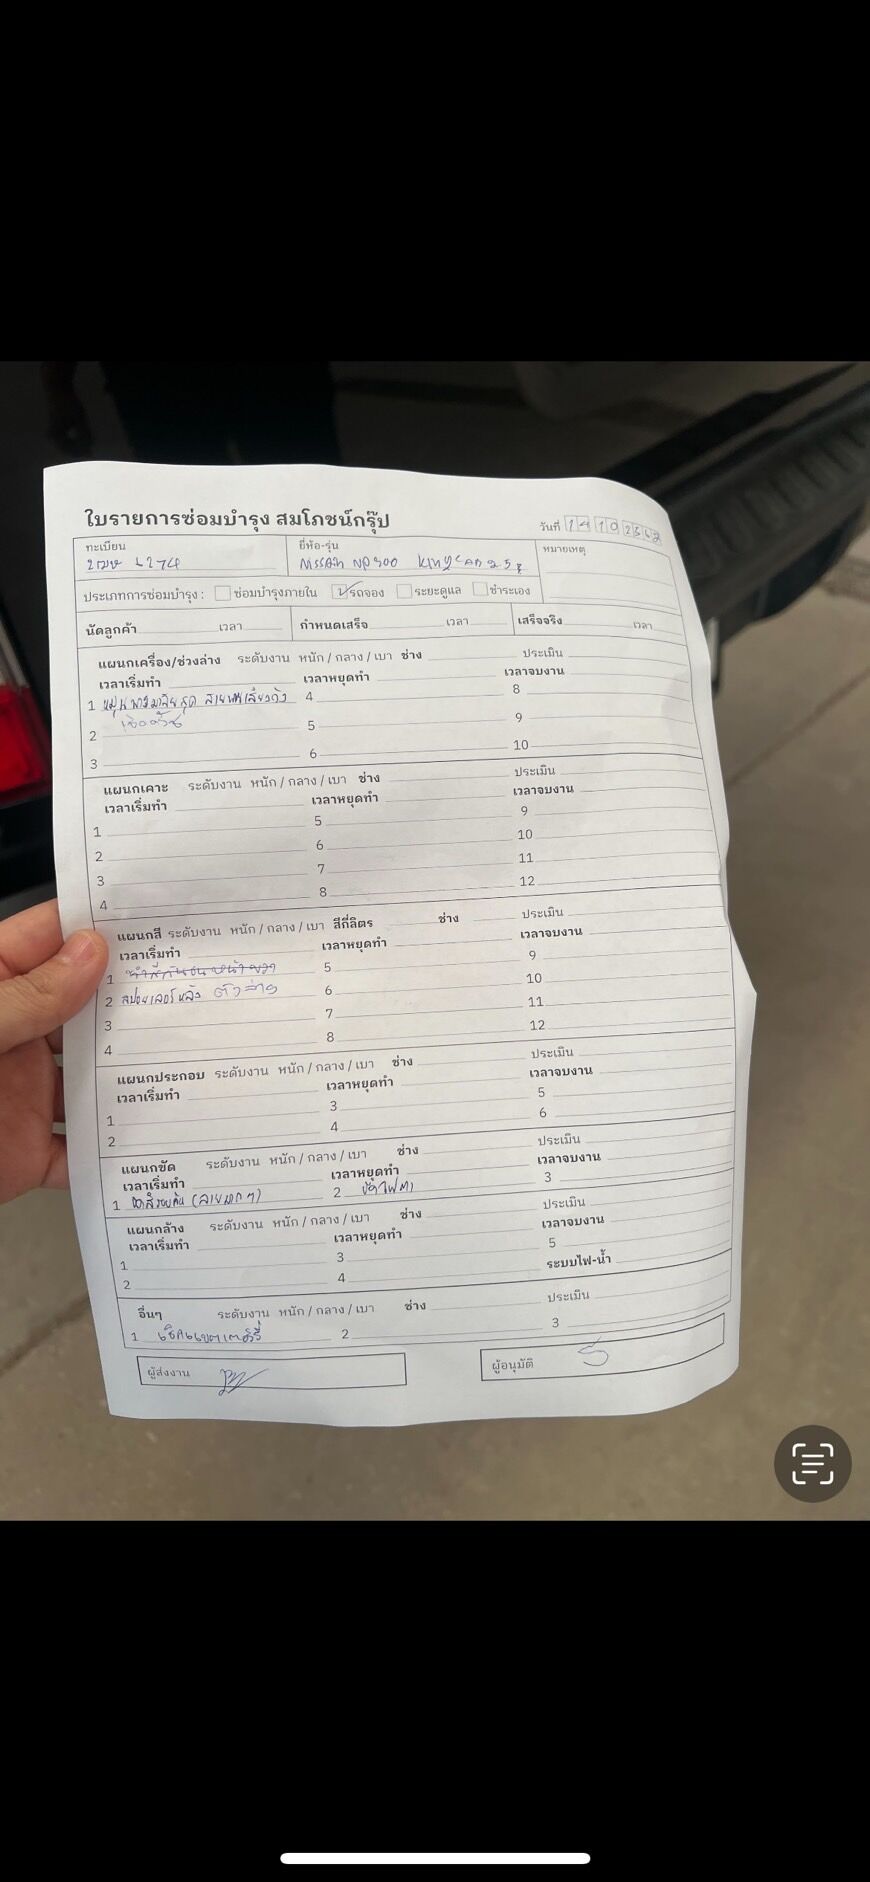 ใบรายการซ่อมบำรุง สมโภชน์กรุ๊ป
วันที่ 14 10 2567
ทะเบียน
ยี่ห้อ-รุ่น
หมายเหตุ
6274
NISSAN NP300 KINGCAB 2.5
ประเภทการซ่อมบำรุง : ซ่อมบำรุงภายใน รถจอง ระยะดูแล ชำระเอง
นัดลูกค้า เวลา กำหนดเสร็จ เวลา เสร็จจริง เวลา
แผนกเครื่อง/ช่วงล่าง ระดับงาน หนัก / กลาง / เบา ช่าง ประเมิน
เวลาเริ่มทำ เวลาหยุดทำ เวลาจบงาน
1 หมุนพวงมาลัยสุด สายพานเสียงดัง 4 8
2 5 9
3 6 10
แผนกเคาะ ระดับงาน หนัก / กลาง / เบา ช่าง ประเมิน
เวลาเริ่มทำ เวลาหยุดทำ เวลาจบงาน
1 5 9
2 6 10
3 7 11
4 8 12
แผนกสี ระดับงาน หนัก / กลาง / เบา สีกี่ลิตร ช่าง ประเมิน
เวลาเริ่มทำ เวลาหยุดทำ เวลาจบงาน
1 ทำสีกันชนหน้าขวา 5 9
2 สปอยเลอร์หลัง ตัวล่าง 6 10
3 7 11
4 8 12
แผนกประกอบ ระดับงาน หนัก / กลาง / เบา ช่าง ประเมิน
เวลาเริ่มทำ เวลาหยุดทำ เวลาจบงาน
1 3 5
2 4 6
แผนกขัด ระดับงาน หนัก / กลาง / เบา ช่าง ประเมิน
เวลาเริ่มทำ เวลาหยุดทำ เวลาจบงาน
1 ขัดสีรอบคัน (ลายแตกๆ) 2 ขัดไฟตา 3
แผนกล้าง ระดับงาน หนัก / กลาง / เบา ช่าง ประเมิน
เวลาเริ่มทำ เวลาหยุดทำ เวลาจบงาน
1 3 5
2 4 ระบบไฟ-น้ำ
อื่นๆ ระดับงาน หนัก / กลาง / เบา ช่าง ประเมิน
1 เช็คแบตเตอรี่ 2 3
ผู้ส่งงาน
ผู้อนุมัติ